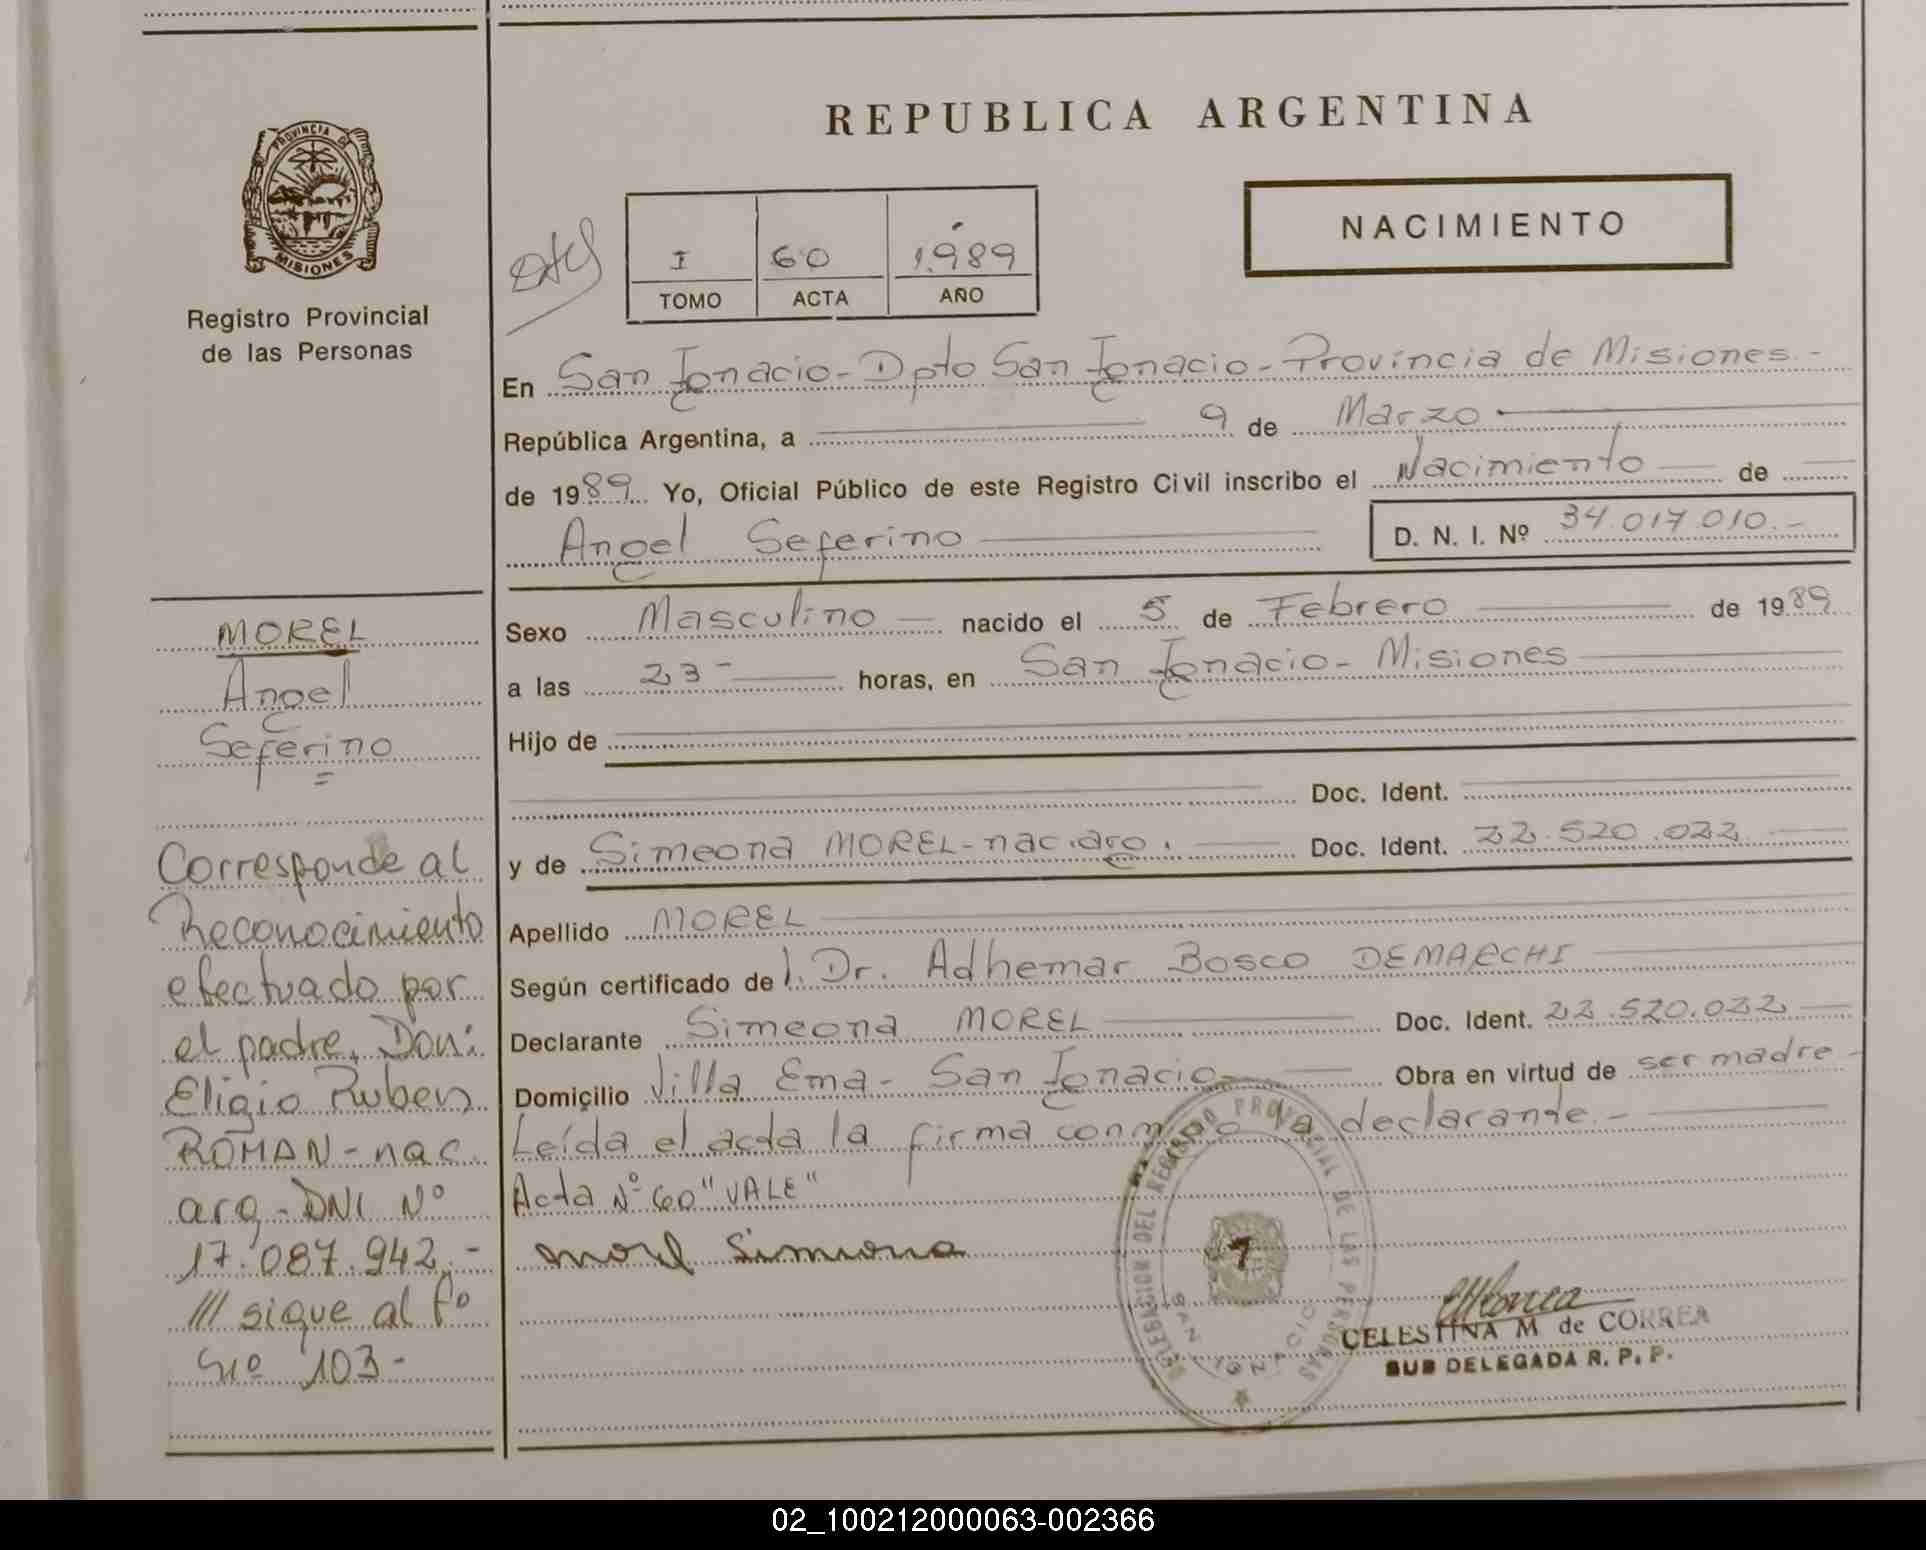 REPUBLICA ARGENTINA
PROVINCIA DE
MISIONES
Registro Provincial
de las Personas
NACIMIENTO
I 60 1.989
TOMO ACTA AÑO
En San Ignacio - Dpto San Ignacio - Provincia de Misiones. -
República Argentina, a 9 de Marzo
de 1989 Yo, Oficial Público de este Registro Civil inscribo el Nacimiento de
Angel Seferino D. N. I. Nº 34.017.010. -
Sexo Masculino nacido el 5 de Febrero de 1989
a las 23 - horas, en San Ignacio - Misiones
Hijo de
Doc. Ident.
y de Simeona MOREL - nac. arg. Doc. Ident. 22.520.022
Apellido MOREL
Según certificado de l. Dr. Adhemar Bosco DEMARCHI
Declarante Simeona MOREL Doc. Ident. 22.520.022
Domicilio Villa Ema - San Ignacio Obra en virtud de ser madre -
Leída el acta la firma conmigo la declarante. -
Acta Nº 60 "VALE"
morel Simiona
MOREL
Angel
Seferino
=
Corresponde al
Reconocimiento
efectuado por
el padre, Don:
Eligio Ruben
ROMAN - nac.
arg - DNI Nº
17.087.942. -
/// sigue al fº
Nº 103 -
DELEGACION DEL REGISTRO PROVINCIAL DE LAS PERSONAS
SAN IGNACIO
CELESTINA M de CORREA
SUB DELEGADA R. P. P.
02_100212000063-002366